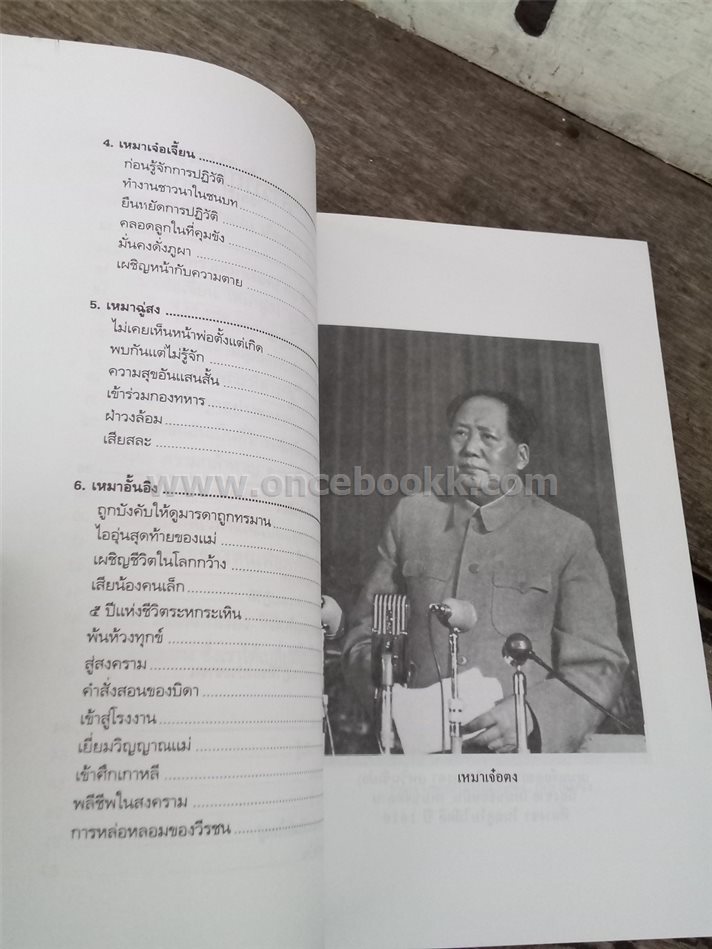 4. เหมาเจ๋อเจี้ยน
ก่อนรู้จักการปฏิวัติ
ทำงานชาวนาในชนบท
ยืนหยัดการปฏิวัติ
คลอดลูกในที่คุมขัง
มั่นคงดั่งภูผา
เผชิญหน้ากับความตาย
5. เหมาฉู่สง
ไม่เคยเห็นหน้าพ่อตั้งแต่เกิด
พบกันแต่ไม่รู้จัก
ความสุขอันแสนสั้น
เข้าร่วมกองทหาร
ฝ่าวงล้อม
เสียสละ
www.oncebookk.com
6. เหมาอั้นอิง
ถูกบังคับให้ดูมารดาถูกทรมาน
ไออุ่นสุดท้ายของแม่
เผชิญชีวิตในโลกกว้าง
เสียน้องคนเล็ก
๕ ปีแห่งชีวิตระหกระเหิน
พ้นห้วงทุกข์
สู่สงคราม
คำสั่งสอนของบิดา
เข้าสู่โรงงาน
เยี่ยมวิญญาณแม่
เข้าศึกเกาหลี
พลีชีพในสงคราม
การหล่อหลอมของวีรชน
เหมาเจ๋อตง